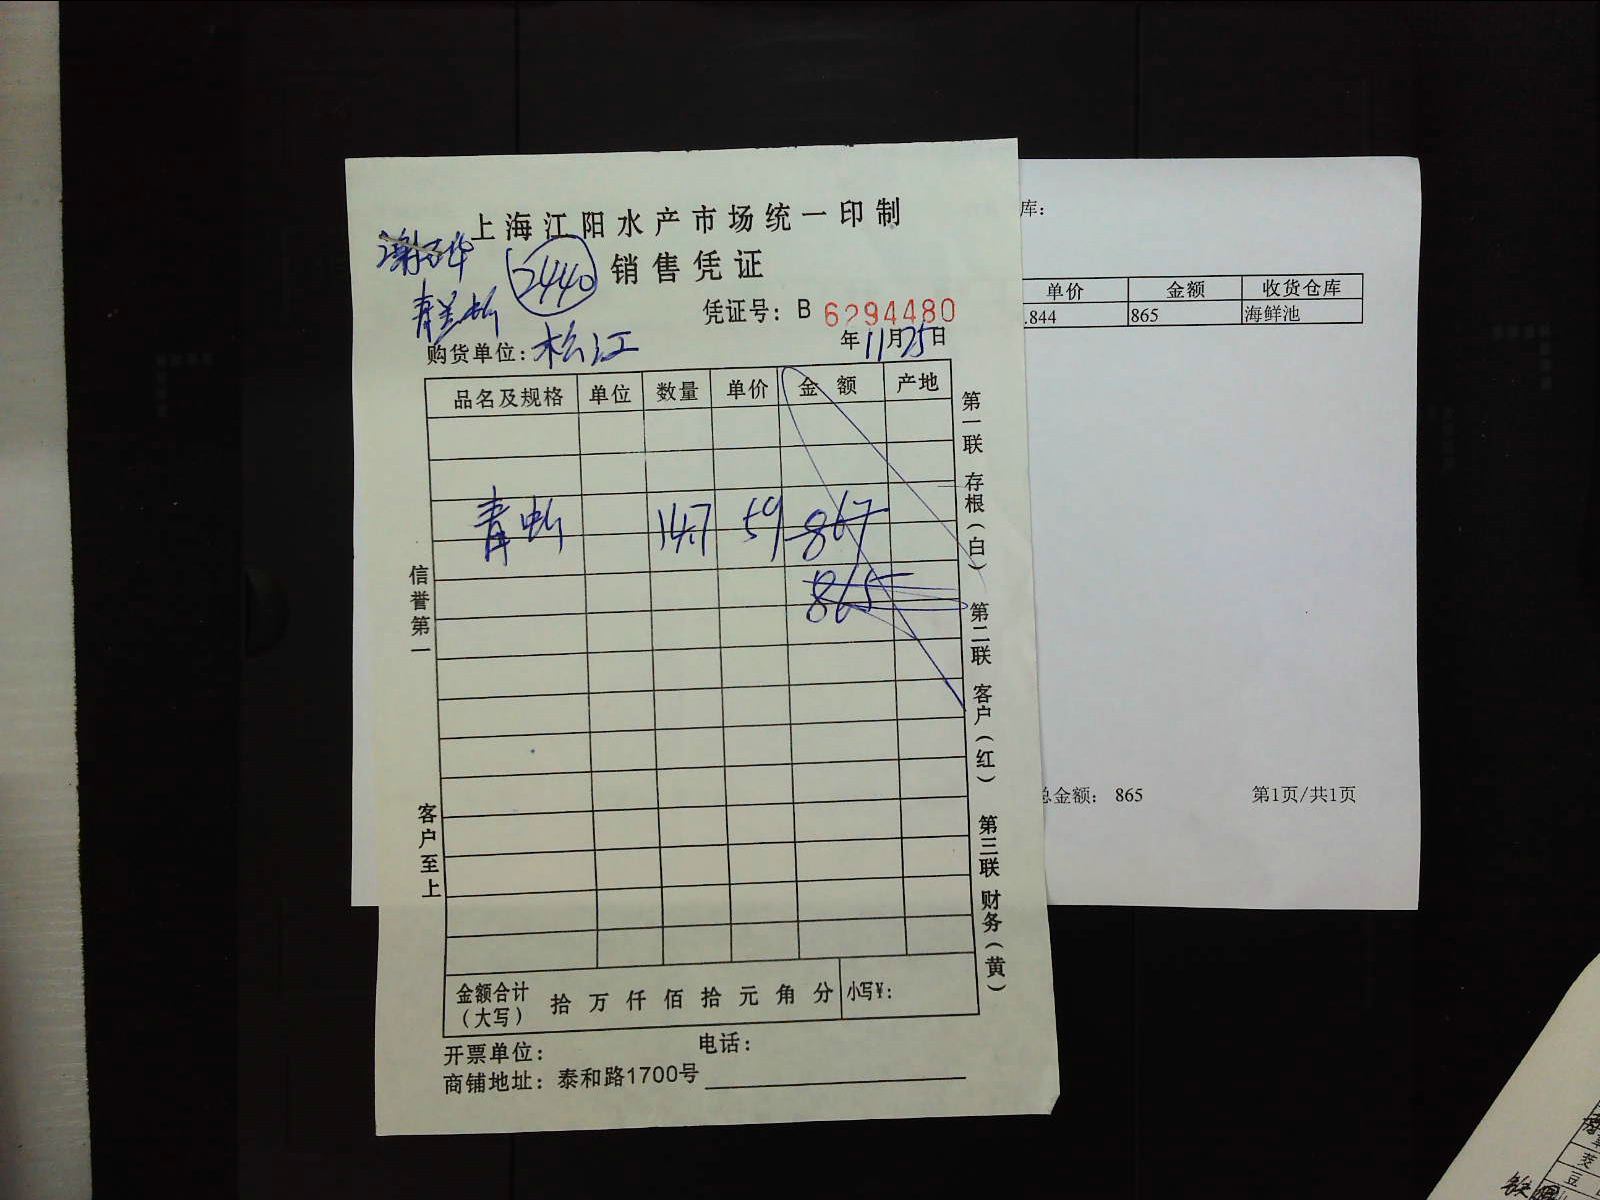 上海江阳水产市场统一印制
2440 销售凭证
凭证号：B 6294480
购货单位：松江
年11月25日
品名及规格 单位 数量 单价 金额 产地
青 14.7 59 867
865
信誉第一
客户至上
第一联 存根（白） 第二联 客户（红） 第三联 财务（黄）
金额合计（大写） 拾 万 仟 佰 拾 元 角 分 小写¥：
开票单位：
电话：
商铺地址：泰和路1700号
库：
单价 金额 收货仓库
.844 865 海鲜池
总金额： 865
第1页/共1页